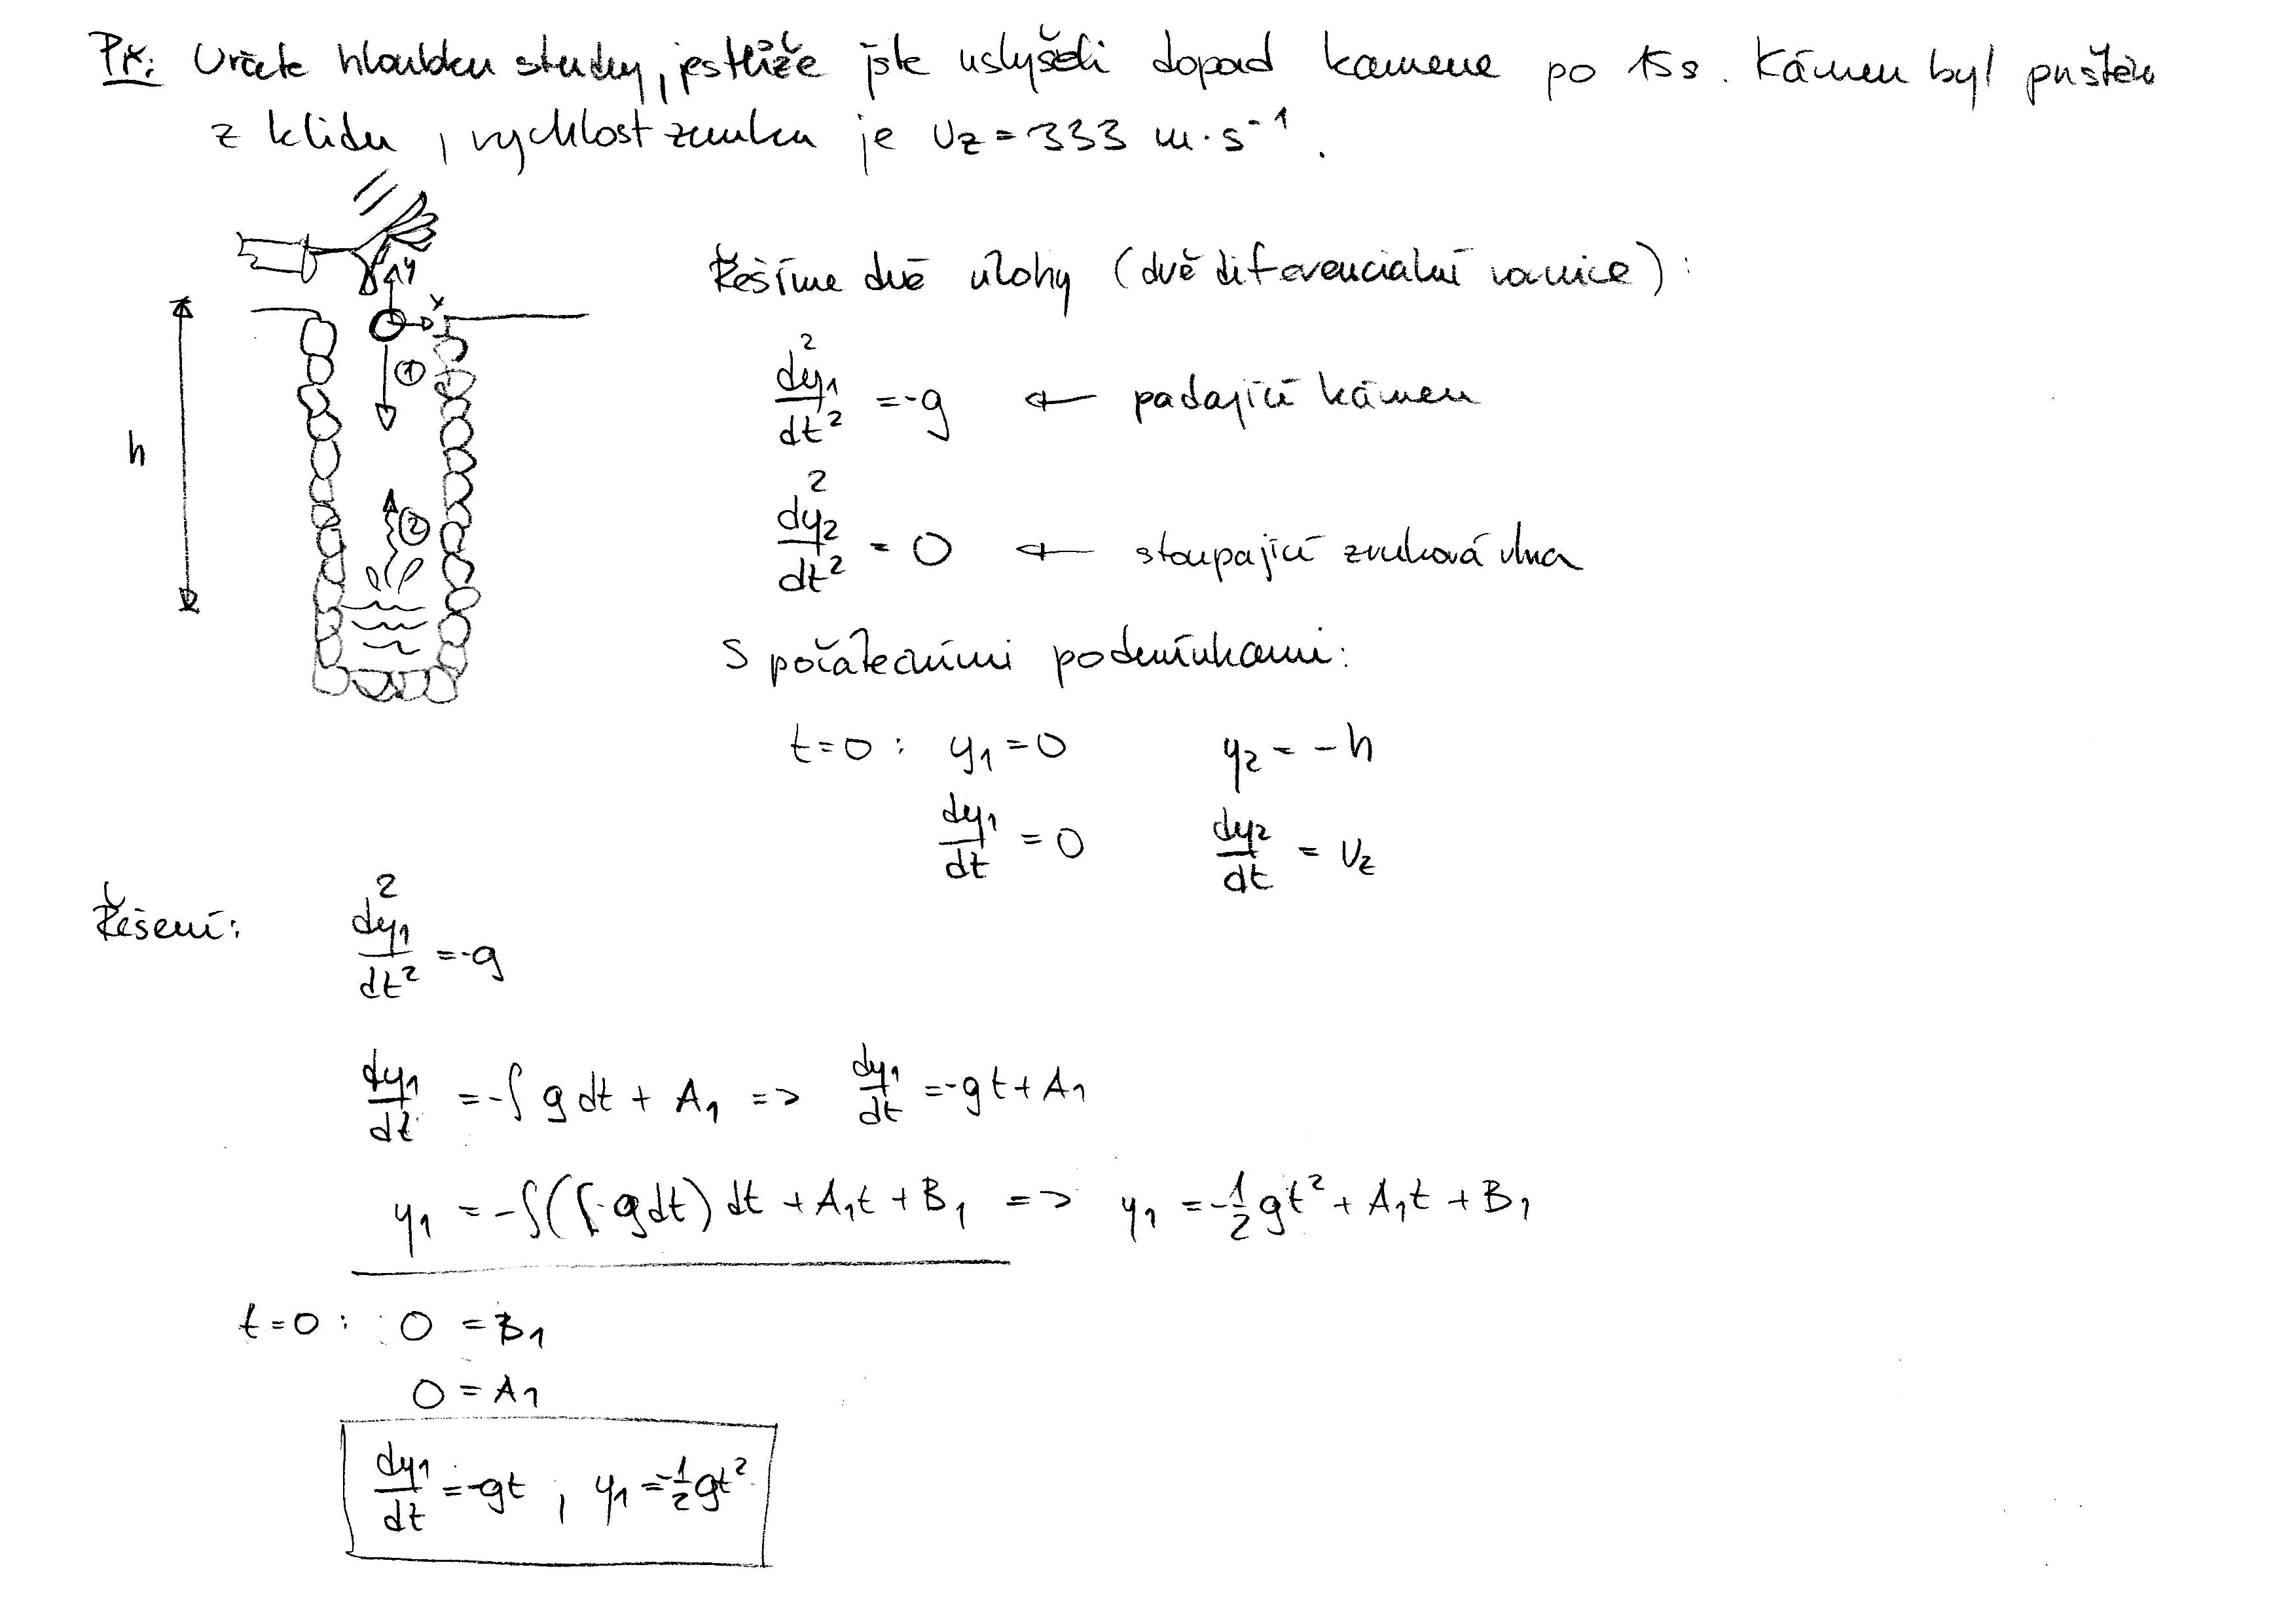 Př: Určete hloubku studny, jestliže jste uslyšeli dopad kamene po 15 s. Kámen byl puštěn
z klidu, rychlost zvuku je v_z = 333 m·s⁻¹.
y
x
①
h
②
Řešíme dvě úlohy (dvě diferenciální rovnice):
d²y₁/dt² = -g ← padající kámen
d²y₂/dt² = 0 ← stoupající zvuková vlna
S počátečními podmínkami:
t=0: y₁=0 y₂ = -h
dy₁/dt = 0 dy₂/dt = v_z
Řešení: d²y₁/dt² = -g
dy₁/dt = -∫ g dt + A₁ => dy₁/dt = -gt + A₁
y₁ = -∫(∫ g dt) dt + A₁t + B₁ => y₁ = -½gt² + A₁t + B₁
t=0: 0 = B₁
0 = A₁
dy₁/dt = -gt, y₁ = -½gt²